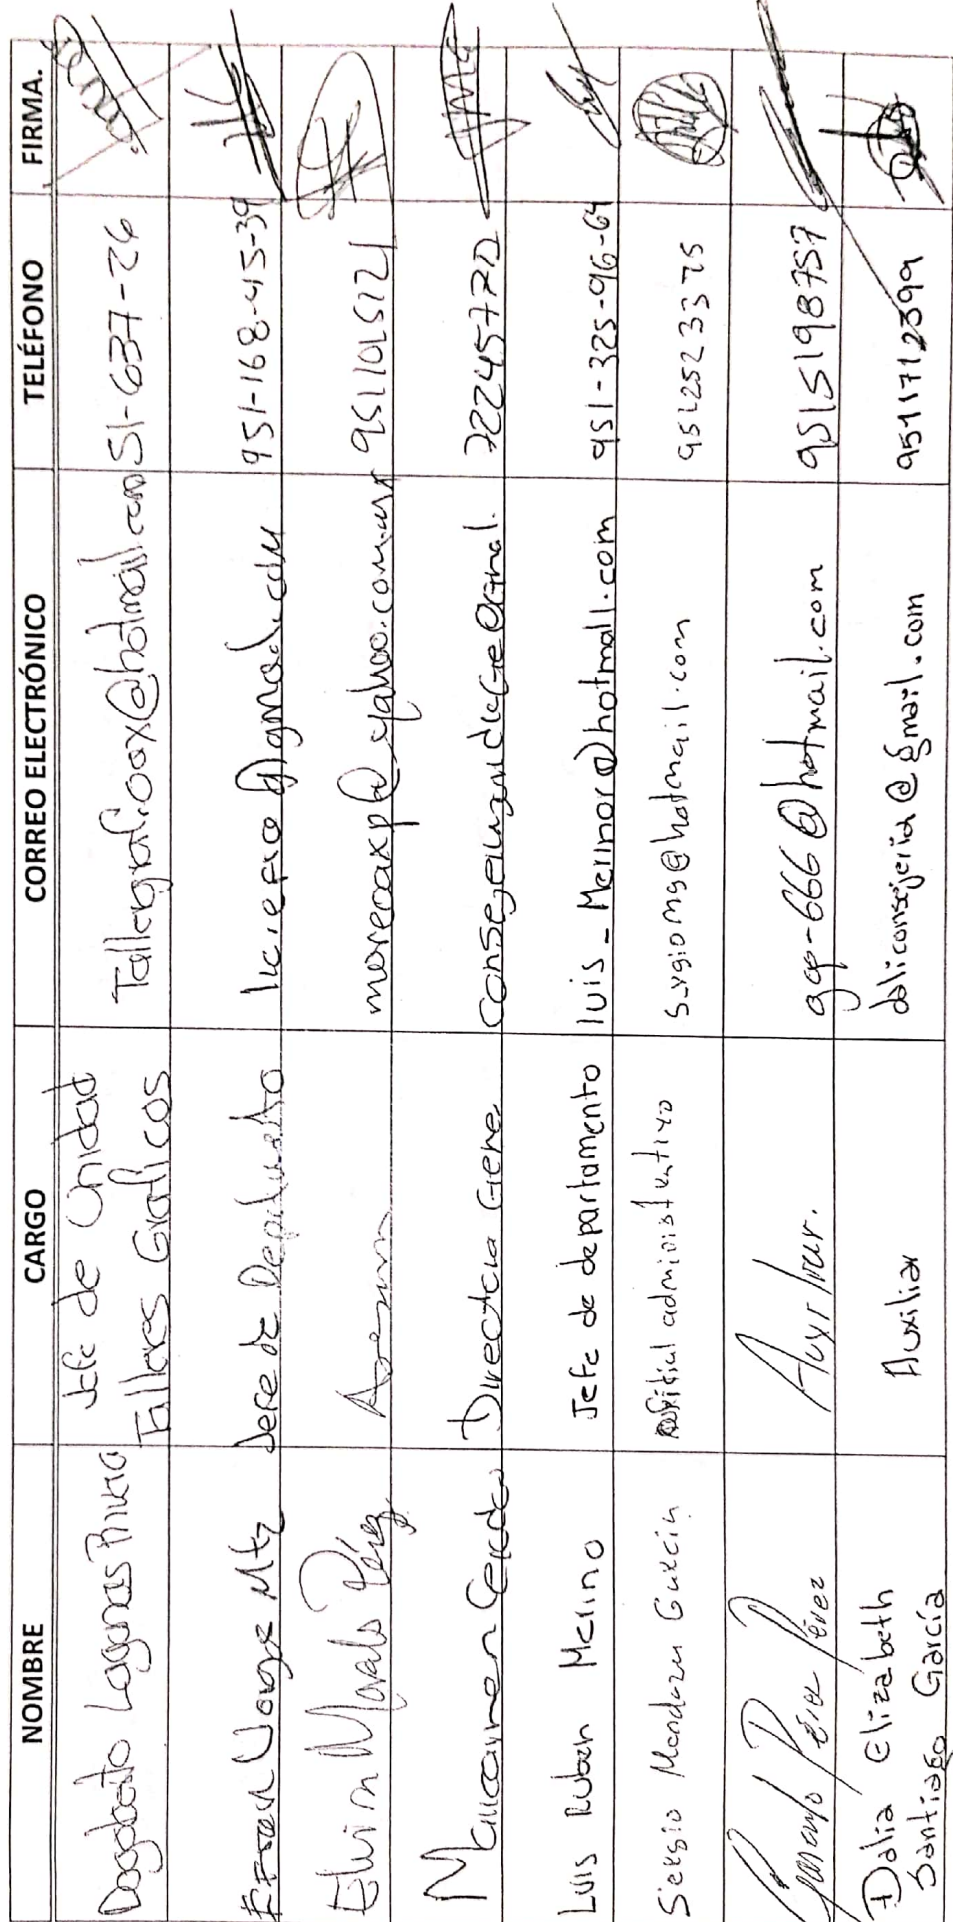 NOMBRE CARGO CORREO ELECTRÓNICO TELÉFONO FIRMA.
Dagoberto Lagunas Jefe de Unidad Talleres Graficos Tallergraf.oax@hotmail.com 51-637-26
Efren Mtz Jefe de 951-168-45-39
Elvira Morales Pérez Asesora moreoaxp@yahoo.com.mx 9511015121
Maricarmen Directora Gene
LUIS Ruben Merino Jefe de departamento luis_Merinor@hotmail.com 951-325-96-64
Sergio Mendoza García oficial administrativo sergiomg@hotmail.com 9512523375
Gerardo Pérez Pérez Auxiliar. gap-666@hotmail.com 9515198757
Dalia Elizabeth
Santiago García Auxiliar daliconsejeria@gmail.com 9511712399